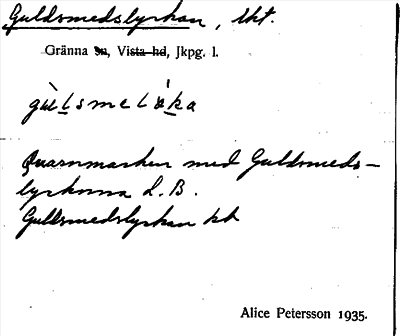 Guldsmedslyckan, tkt.
Gränna sn, Vista hd, Jkpg. l.
gùlsmelýka
Qvarnmarken med Guldsmeds-
lyckorna L.B.
Guldsmedslyckan kk
Alice Petersson 1935.